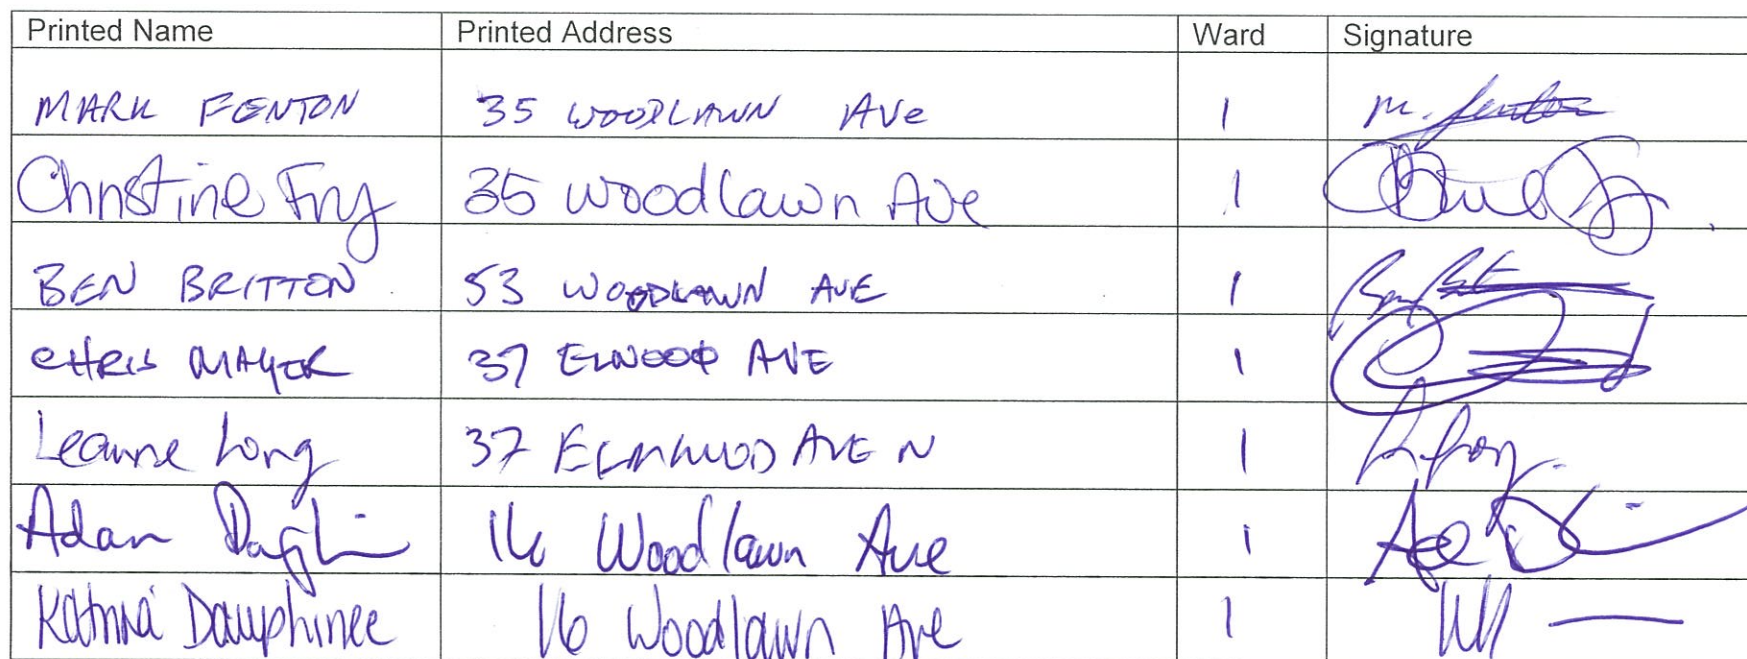 Printed Name Printed Address Ward Signature
MARK FENTON 35 WOODLAWN AVe 1 M. Fenton
Christine Fry 35 Woodlawn Ave 1
BEN BRITTON 53 WOODLAWN AVE 1
CHRIS MAYOR 37 ELWOOD AVE 1
Leanne Long 37 ELMWOOD AVE N 1
Adam 16 Woodlawn Ave 1
Katrina Dauphinee 16 Woodlawn Ave 1